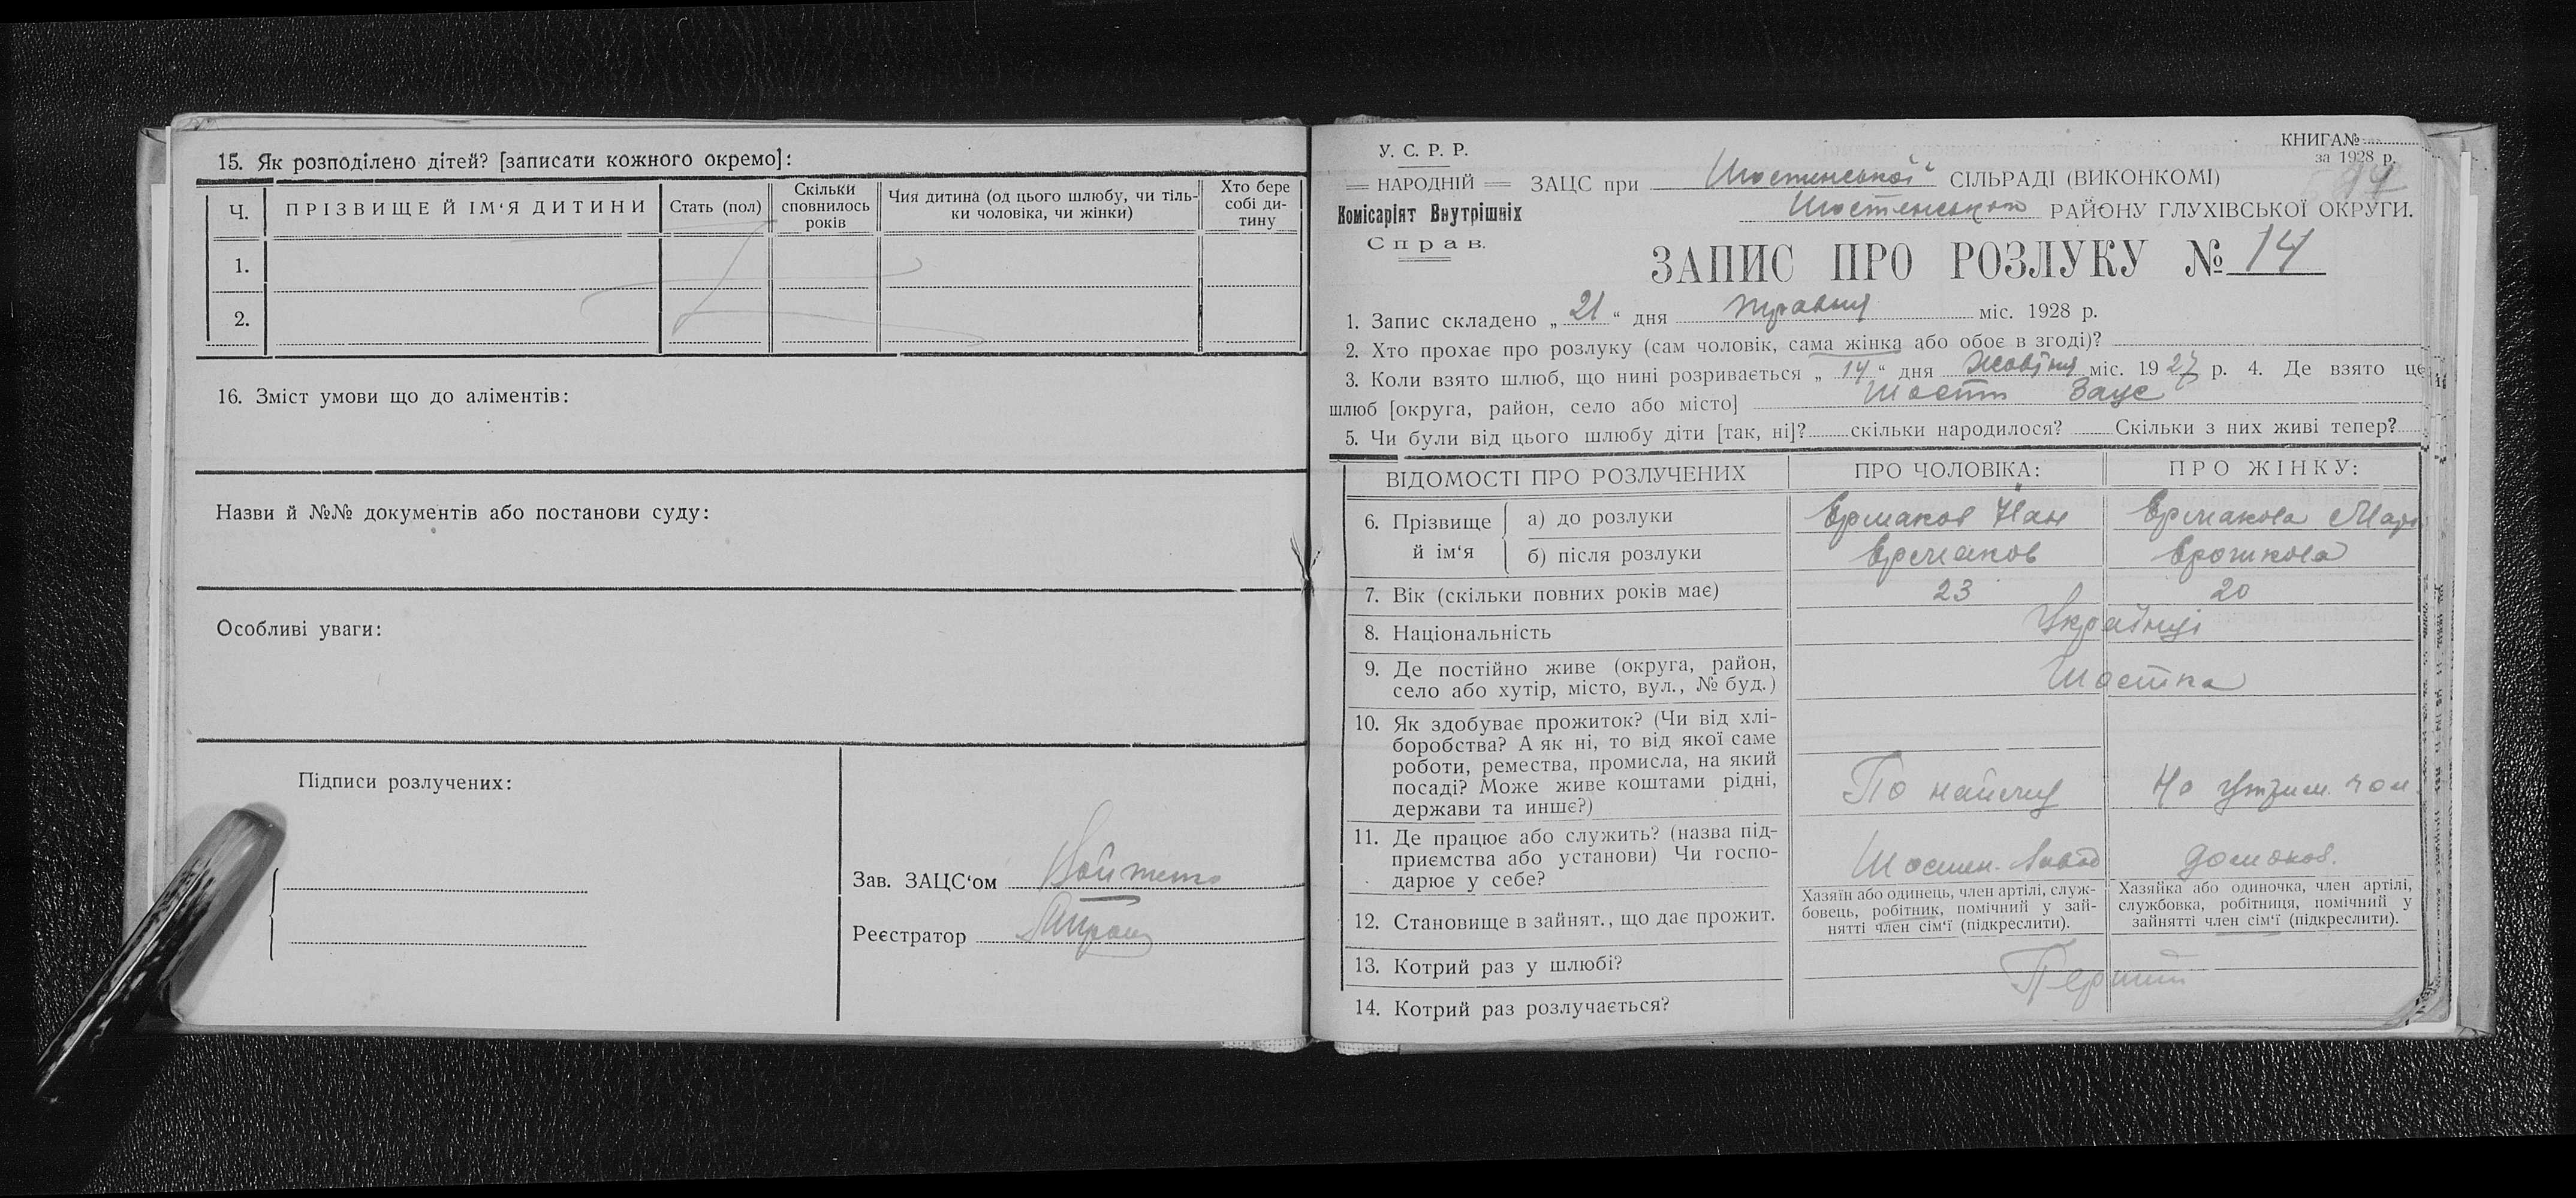 15. Як розподілено дітей? [записати кожного окремо]:
Ч. ПРІЗВИЩЕ Й ІМ‘Я ДИТИНИ Стать (пол) Скільки сповнилось років Чия дитина (од цього шлюбу, чи тільки чоловіка, чи жінки) Хто бере собі дитину
1.
2.
16. Зміст умови що до аліментів:
Назви й №№ документів або постанови суду:
Особливі уваги:
Підписи розлучених:
Зав. ЗАЦС‘ом
Реєстратор
КНИГА №
за 1928 р.
У. С. Р. Р.
НАРОДНІЙ
Комісаріят Внутрішніх
Справ.
ЗАЦС при Шостенської СІЛЬРАДІ (ВИКОНКОМІ)
Шостенського РАЙОНУ ГЛУХІВСЬКОЇ ОКРУГИ.
ЗАПИС ПРО РОЗЛУКУ № 14
1. Запис складено „ 21 “ дня травня міс. 1928 р.
2. Хто прохає про розлуку (сам чоловік, сама жінка або обоє в згоді)?
3. Коли взято шлюб, що нині розривається „ 14 “ дня жовтня міс. 1927 р. 4. Де взято це
шлюб [округа, район, село або місто] Шост Зацс
5. Чи були від цього шлюбу діти [так, ні]? скільки народилося? Скільки з них живі тепер?
ВІДОМОСТІ ПРО РОЗЛУЧЕНИХ ПРО ЧОЛОВІКА: ПРО ЖІНКУ:
6. Прізвище й ім‘я а) до розлуки Ермаков Іван Ермакова Мар
б) після розлуки Ермаков Ерошкова
7. Вік (скільки повних років має) 23 20
8. Національність Українці
9. Де постійно живе (округа, район,
село або хутір, місто, вул., № буд.) Шостка
10. Як здобуває прожиток? (Чи від хлі-
боробства? А як ні, то від якої саме
роботи, ремества, промисла, на який
посаді? Може живе коштами рідні,
держави та инше?) По найму На утрим. чол.
11. Де працює або служить? (назва під-
приємства або установи) Чи госпо-
дарює у себе? Шостен. Завод домохоз.
12. Становище в зайнят., що дає прожит.
Хазяїн або одинець, член артілі, служ-
бовець, робітник, помічний у зай-
нятті член сім‘ї (підкреслити).
Хазяйка або одиночка, член артілі,
службовка, робітниця, помічний у
зайнятті член сім‘ї (підкреслити).
13. Котрий раз у шлюбі? Перший
14. Котрий раз розлучається?